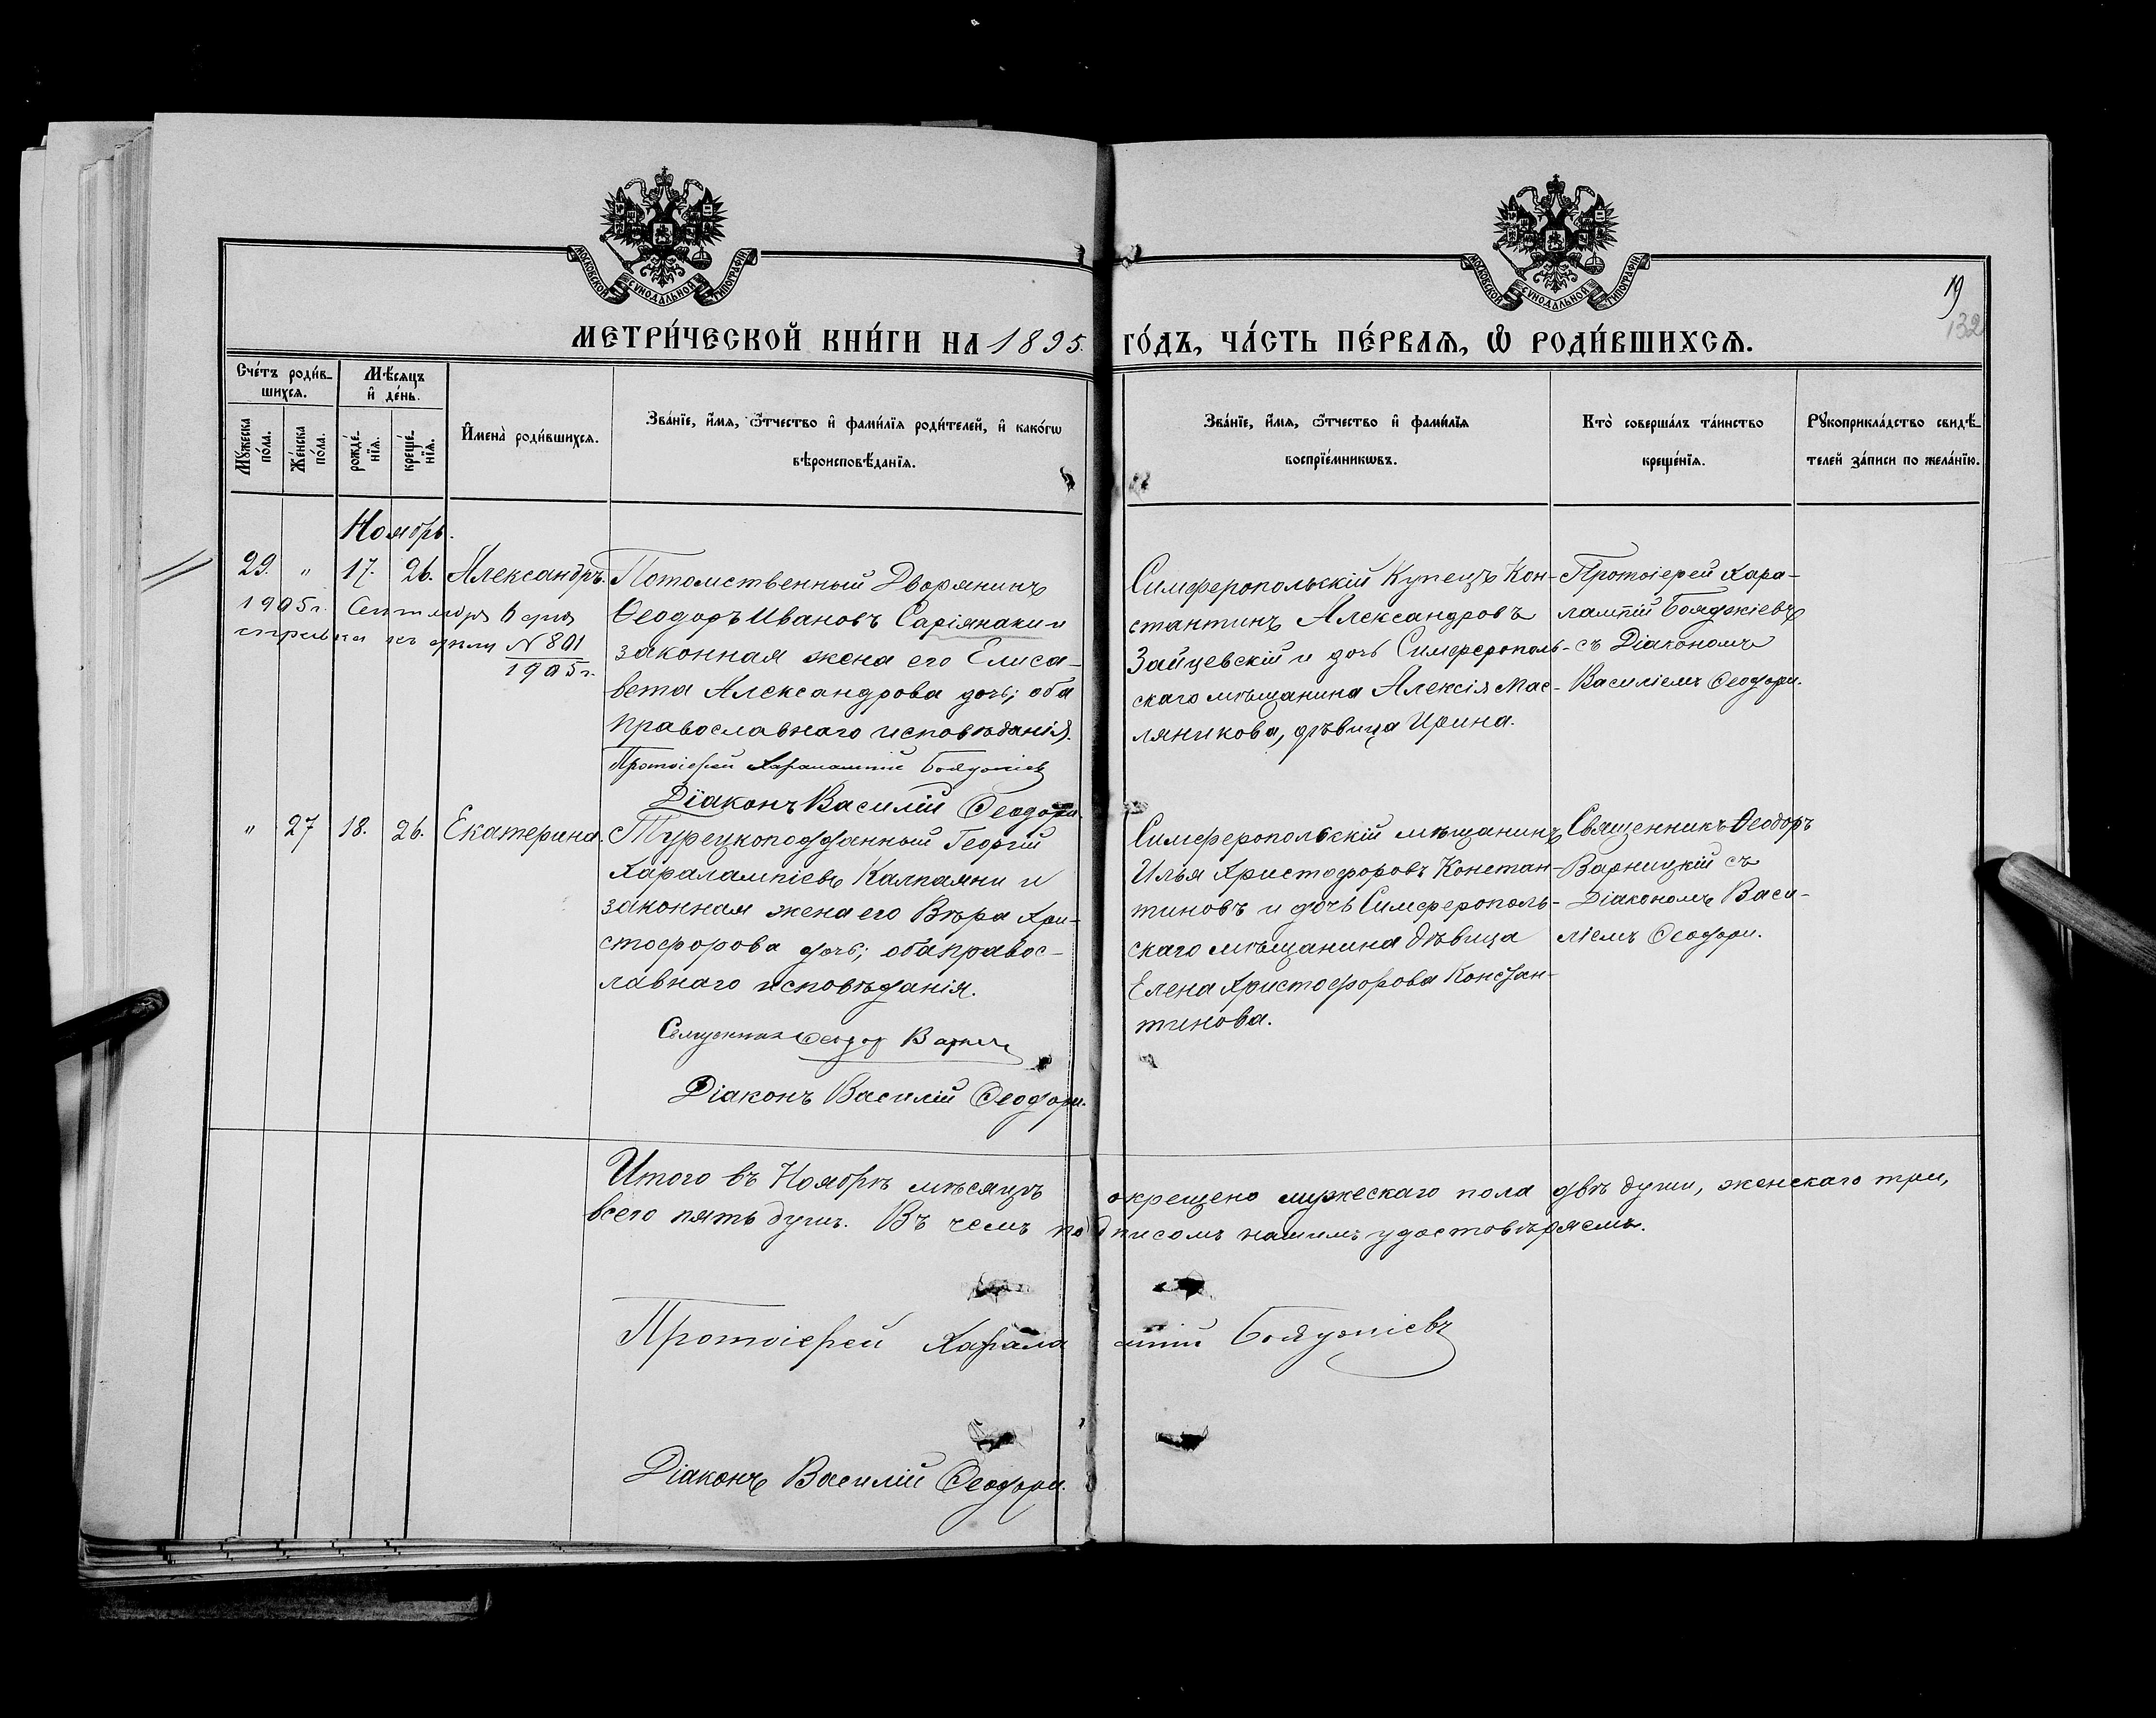 МОСКОВСКОЙ СУНОДАЛЬНОЙ ТИПОГРАФІИ
МОСКОВСКОЙ СУНОДАЛЬНОЙ ТИПОГРАФІИ
19
132
МЕТРИ́ЧЕСКОЙ КНИ́ГИ НА 1895 ГО́ДЪ, ЧА́СТЬ ПЕ́РВАѦ, Ѡ҆ РОДИ́ВШИХСѦ.
Сче́тъ роди́в-
шихсѧ.
Мꙋ́жеска по́ла.
Же́нска по́ла.
Мѣ́сѧцъ
и҆ де́нь.
рожде́-нїѧ.
креще́-нїѧ.
И҆мена̀ роди́вшихсѧ.
Зва́нїе, и҆́мѧ, ѻ҆́тчество и҆ фами́лїѧ роди́телей, и҆ како́гѡ
вѣроисповѣ́данїѧ.
Зва́нїе, и҆́мѧ, ѻ҆́тчество и҆ фами́лїѧ
воспрїе́мникѡвъ.
Кто̀ соверша́лъ та́инство
креще́нїѧ.
Рꙋкоприкла́дство свидѣ́-
телей за́писи по жела́нїю.
Ноябрь.
29. " 17. 26. Александръ.
1905 г. Сентября 6 дня
справка къ дѣлу № 801
1905 г.
Потомственный Дворянинъ
Ѳеодоръ Ивановъ Саріянаки и
законная жена его Елиса-
вета Александрова дочь; оба
православнаго исповѣданія.
Протоіерей Харалампій Бояджіевъ
Діаконъ Василій Ѳеодори.
Симферопольскій Купецъ Кон-
стантинъ Александровъ
Зайцевскій и дочь Симферополь-
скаго мѣщанина Алексія Мас-
ляникова, дѣвица Ирина.
Протоіерей Хара-
лампій Бояджіевъ
съ Діакономъ
Василіемъ Ѳеодори.
" 27 18. 26. Екатерина.
Турецкоподданный Георгій
Харалампіевъ Калпаяни и
законная жена его Вѣра Хри-
стофорова дочь; оба правос-
лавнаго исповѣданія.
Священникъ Ѳеодор Варниц
Діаконъ Василій Ѳеодори.
Симферопольскій мѣщанинъ
Илья Христофоровъ Констан-
тиновъ и дочь Симферополь-
скаго мѣщанина дѣвица
Елена Христофорова Констан-
тинова.
Священникъ Ѳеодоръ
Варницкій съ
Діакономъ Васи-
ліемъ Ѳеодори.
Итого въ Ноябрѣ мѣсяцѣ окрещено мужескаго пола двѣ души, женскаго три,
всего пять душъ. Въ чемъ подписомъ нашимъ удостовѣряемъ.
Протоіерей Харалампій Бояджіевъ
Діаконъ Василій Ѳеодори.